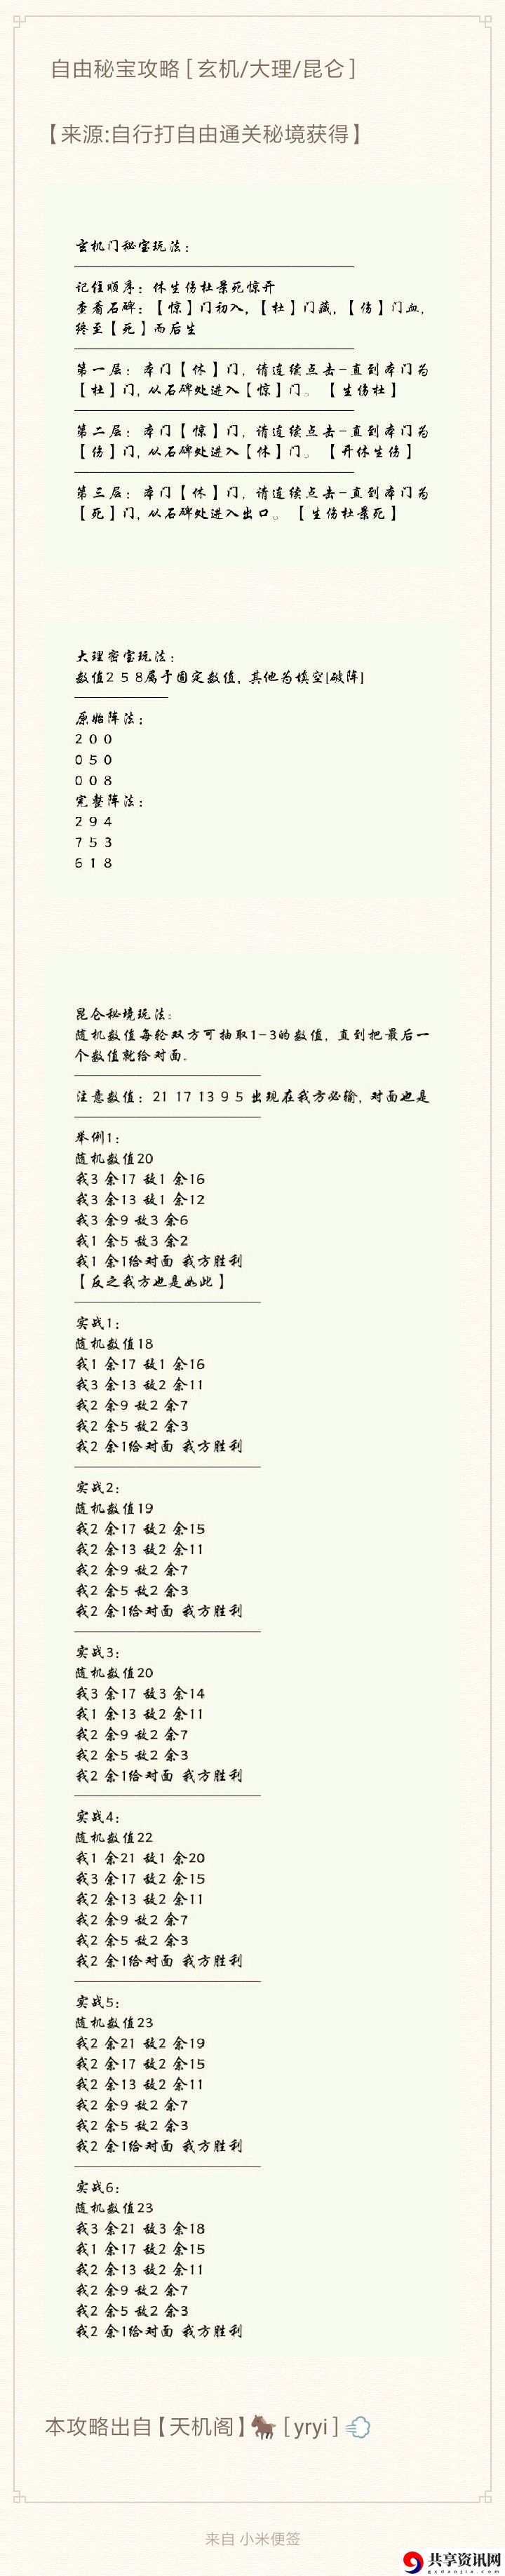 自由秘宝攻略[玄机/大理/昆仑]
【来源:自行打自由通关秘境获得】
玄机门秘宝玩法：
记住顺序：休生伤杜景死惊开
查看石碑：【惊】门初入，【杜】门藏，【伤】门血，
终至【死】而后生
第一层：本门【休】门，请连续点击-直到本门为
【杜】门，从石碑处进入【惊】门。【生伤杜】
第二层：本门【惊】门，请连续点击-直到本门为
【伤】门，从石碑处进入【休】门。【开休生伤】
第三层：本门【休】门，请连续点击-直到本门为
【死】门，从石碑处进入出口。【生伤杜景死】
大理密宝玩法：
数值2 5 8属于固定数值，其他为填空[破阵]
原始阵法：
2 0 0
0 5 0
0 0 8
完整阵法：
2 9 4
7 5 3
6 1 8
昆仑秘境玩法：
随机数值每轮双方可抽取1-3的数值，直到把最后一
个数值就给对面。
注意数值：21 17 13 9 5 出现在我方必输，对面也是
举例1：
随机数值20
我3 余17 敌1 余16
我3 余13 敌1 余12
我3 余9 敌3 余6
我1 余5 敌3 余2
我1 余1给对面 我方胜利
【反之我方也是如此】
实战1：
随机数值18
我1 余17 敌1 余16
我3 余13 敌2 余11
我2 余9 敌2 余7
我2 余5 敌2 余3
我2 余1给对面 我方胜利
实战2：
随机数值19
我2 余17 敌2 余15
我2 余13 敌2 余11
我2 余9 敌2 余7
我2 余5 敌2 余3
我2 余1给对面 我方胜利
实战3：
随机数值20
我3 余17 敌3 余14
我1 余13 敌2 余11
我2 余9 敌2 余7
我2 余5 敌2 余3
我2 余1给对面 我方胜利
实战4：
随机数值22
我1 余21 敌1 余20
我3 余17 敌2 余15
我2 余13 敌2 余11
我2 余9 敌2 余7
我2 余5 敌2 余3
我2 余1给对面 我方胜利
实战5：
随机数值23
我2 余21 敌2 余19
我2 余17 敌2 余15
我2 余13 敌2 余11
我2 余9 敌2 余7
我2 余5 敌2 余3
我2 余1给对面 我方胜利
实战6：
随机数值23
我3 余21 敌3 余18
我1 余17 敌2 余15
我2 余13 敌2 余11
我2 余9 敌2 余7
我2 余5 敌2 余3
我2 余1给对面 我方胜利
本攻略出自【天机阁】🐎[yryi]💨
来自 小米便签
共享资讯网